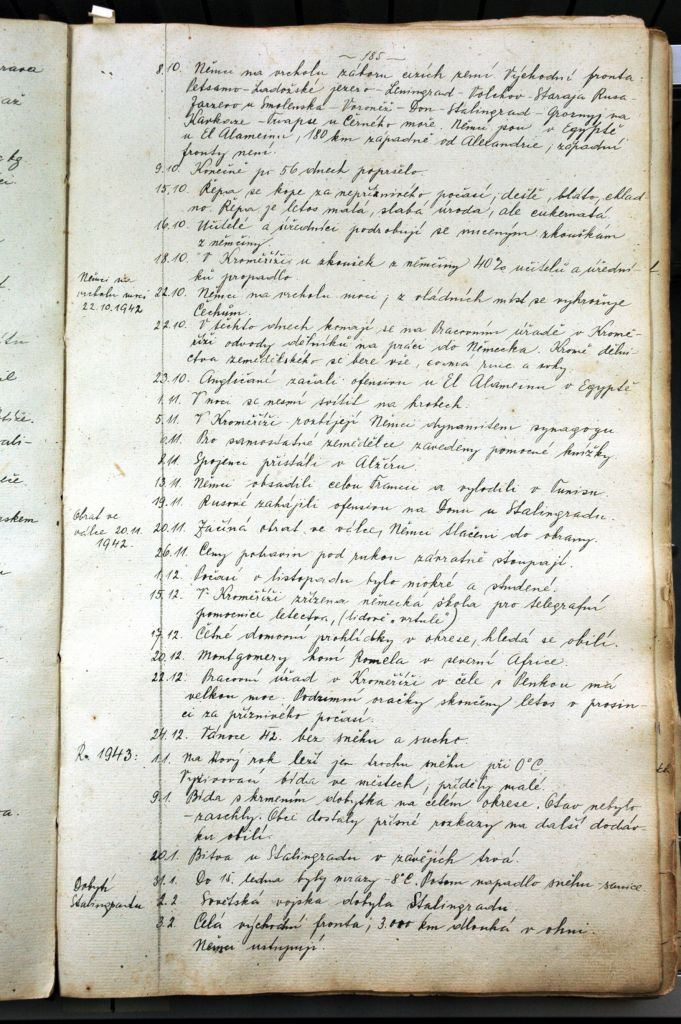 — 185 —
8.10. Němci na vrcholu záboru cizích zemí. Východní fronta:
Petsamo - Ladožské jezero - Leningrad - Volchov - Staraja Rusa
u Smolenska - Voroněž - Don - Stalingrad - Groznyj na
Kavkaze - Tuapse u Černého moře. Němci jsou v Egyptě
u El Alameinu, 180 km západně od Alexandrie, západní
fronty není.
9.10. Konečně po 56 dnech popršelo.
15.10. Řepa se kope za nepříznivého počasí, deště, bláto, chlad-
no. Řepa je letos malá, slabá úroda, ale cukernatá.
16.10. Učitelé a úředníci podrobují se nuceným zkouškám
z němčiny.
18.10. V Kroměříži u zkoušek z němčiny 40% učitelů a úřední-
ků propadlo.
Němci na
vrcholu moci
22.10.1942
22.10. Němci na vrcholu moci, z vládních míst se vyhrožuje
Čechům.
22.10. V těchto dnech konají se na Pracovním úřadě v Kromě-
říži odvody dělníků na práci do Německa. Kromě dělni-
ctva zemědělského se bere vše, co má ruce a nohy.
23.10. Angličané začali ofensivu u El Alameinu v Egyptě
1.11. V noci se nesmí svítit na hrobech.
5.11. V Kroměříži rozbíjejí Němci dynamitem synagogu
6.11. Pro samostatné zemědělce zavedeny pomocné knížky.
8.11. Spojenci přistáli v Alžíru.
13.11. Němci obsadili celou Francii a vylodili v Tunisu.
19.11. Rusové zahájili ofensivu na Donu u Stalingradu.
Obrat ve
válce 20.11.
1942.
20.11. Začíná obrat ve válce, Němci tlačeni do obrany.
26.11. Ceny potravin pod rukou závratně stoupají.
1.12. Počasí v listopadu bylo mokré a studené.
15.12. V Kroměříži zřízena německá škola pro telegrafní
pomocnice letectva, (lidově „vrtule")
17.12. Četné domovní prohlídky v okrese, hledá se obilí.
20.12. Montgomery honí Romela v severní Africe.
22.12. Pracovní úřad v Kroměříži v čele s Penkou má
velkou moc. Podzimní oračky skončeny letos v prosin-
ci za příznivého počasí.
24.12. Vánoce 42. bez sněhu a sucho.
R. 1943:
1.1. Na Nový rok leží jen trochu sněhu při 0°C.
Vyživovací bída ve městech, příděly malé.
9.1. Bída s krmením dobytka na celém okrese. Otav nebylo
- zaschly. Obce dostaly přísné rozkazy na další dodáv-
ku obilí.
20.1. Bitva u Stalingradu v závějích trvá.
31.1. Do 15. ledna byly mrazy -8°C. Potom napadlo sněhu - sanice.
Dobytí
Stalingradu
2.2. Sovětská vojska dobyla Stalingradu.
3.2. Celá východní fronta, 3.000 km dlouhá v ohni.
Němci ustupují.